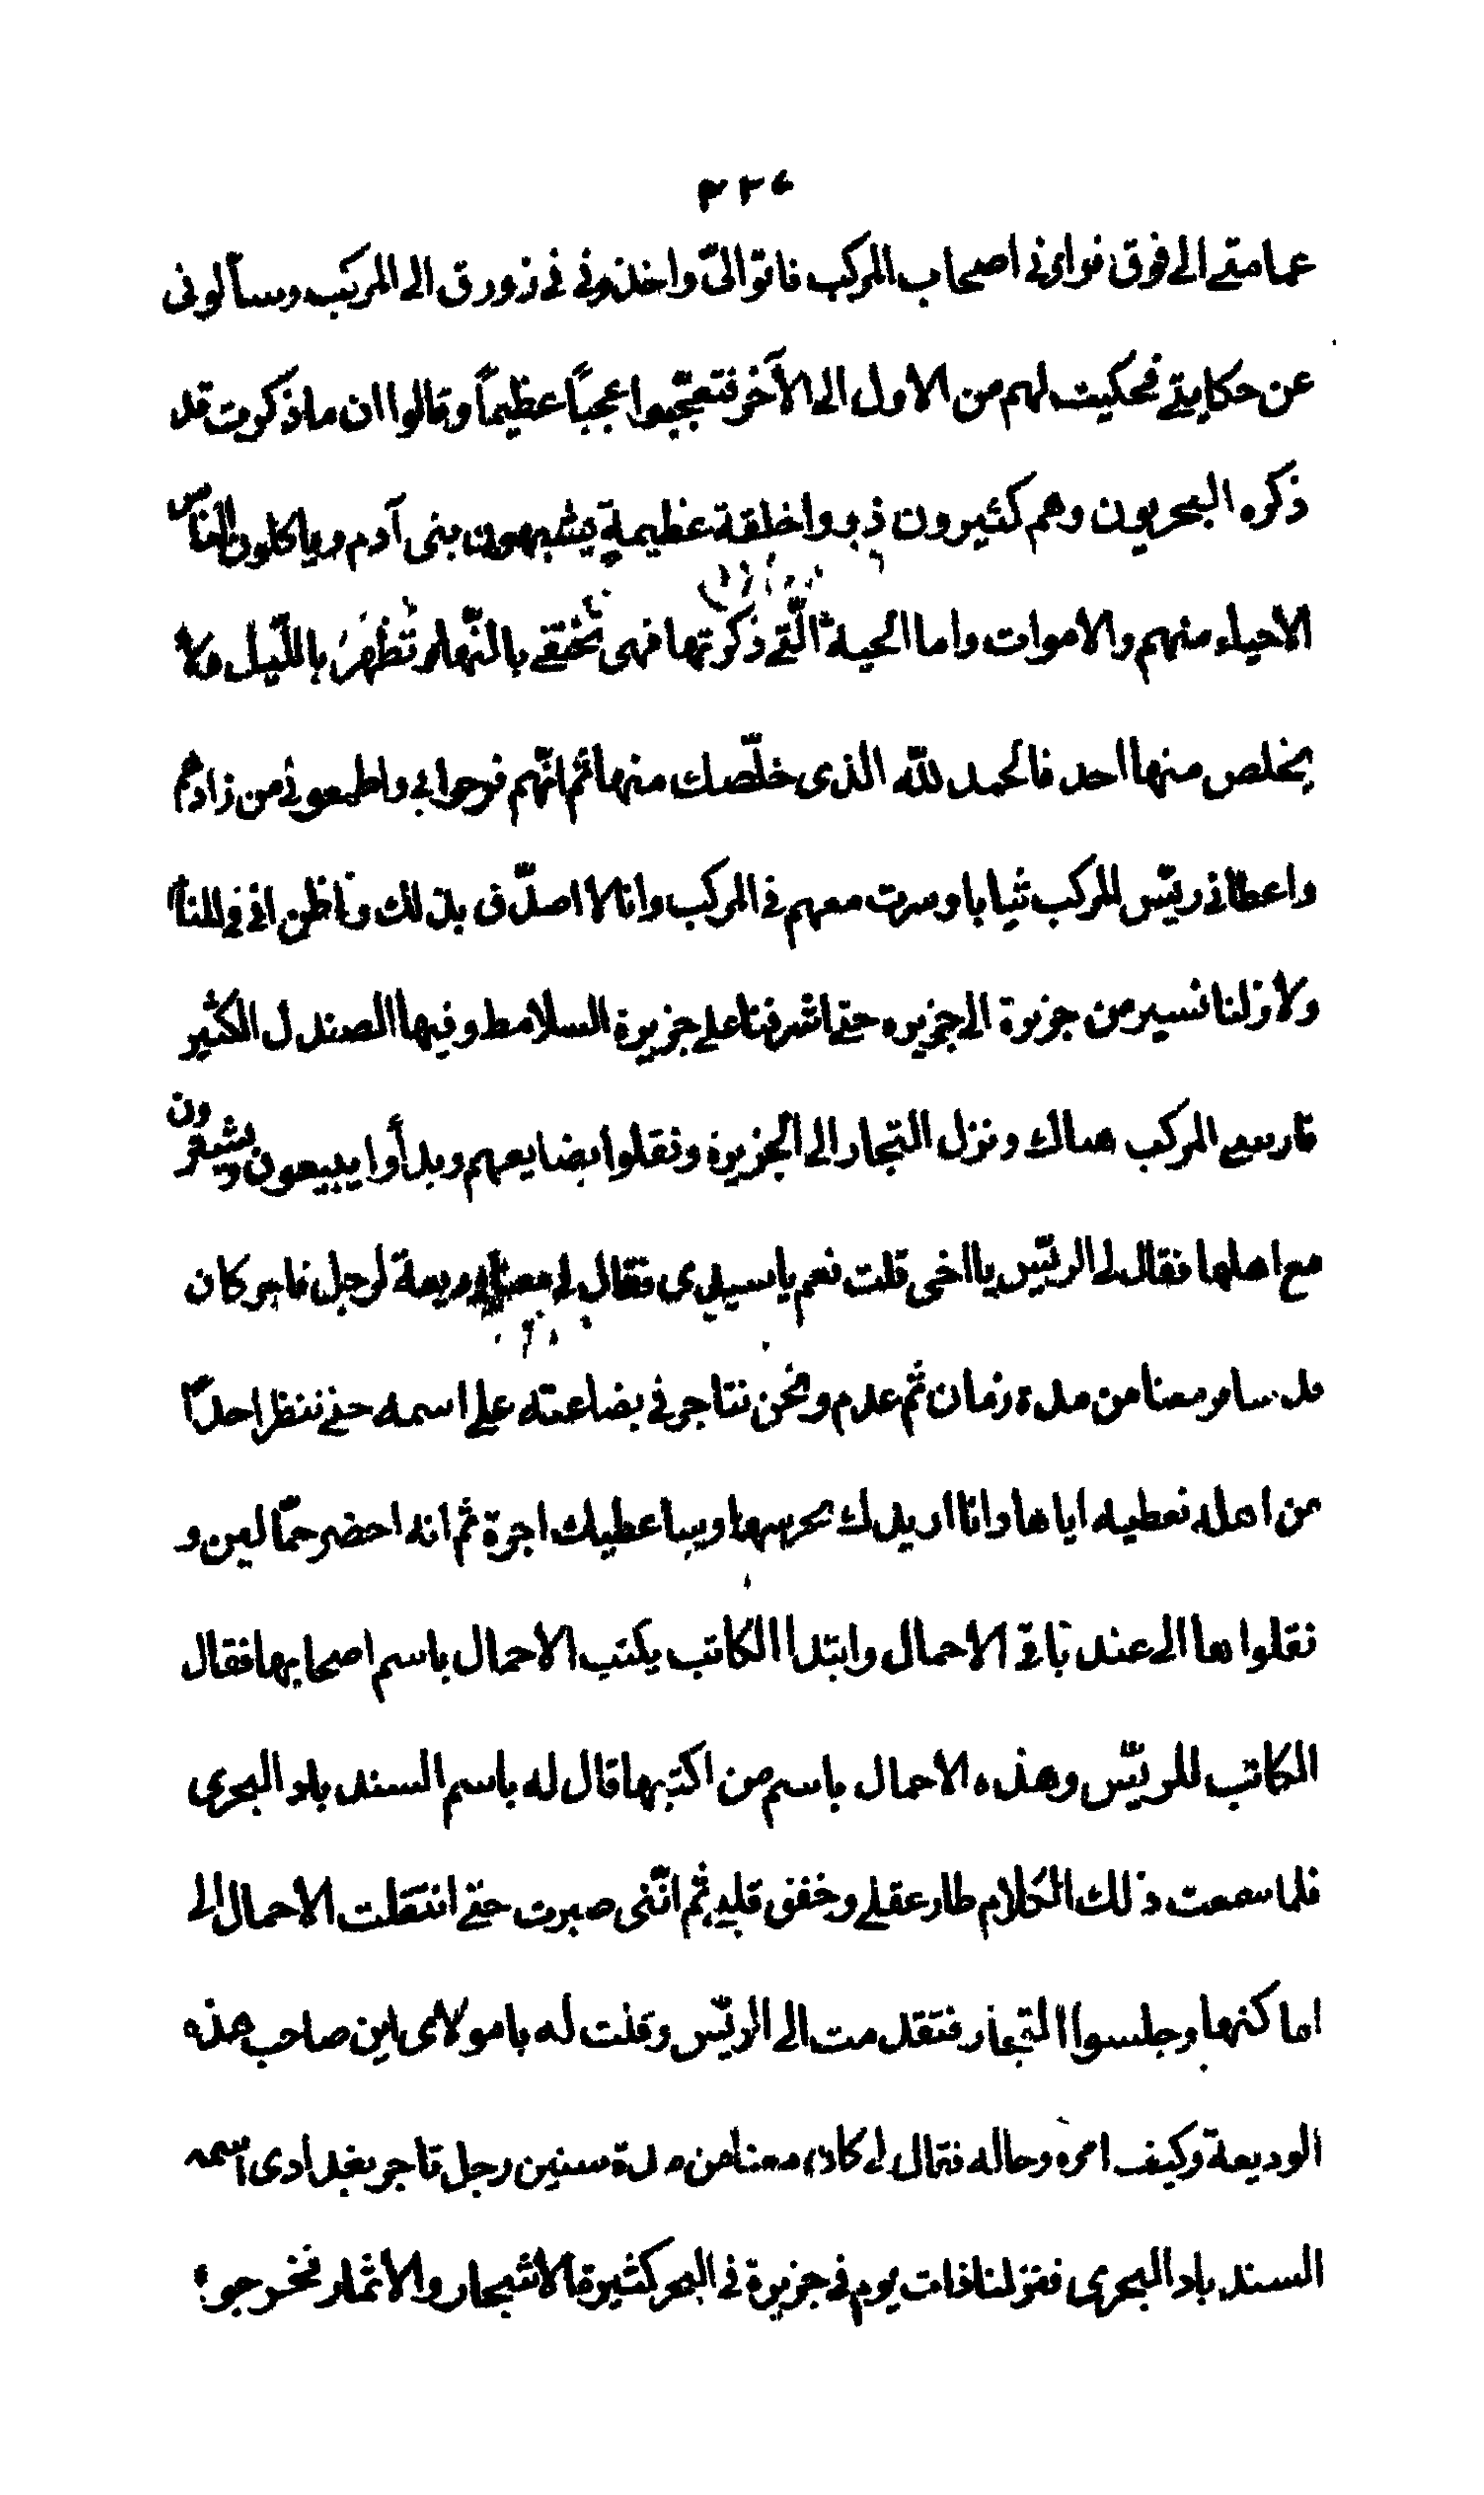 عمامتي الى فوق فراوني اصحاب المركب فاتوا اليّ واخذوني في زورق الى المركب وسألوني
عن حكايتي فحكيت لهم من الاول الى الآخر فتعجّبوا عجباً عظيماً وقالوا ان ما ذكرت قد
ذكره البحريون وهم كثيرون ذووا خلقة عظيمة يشبهون بنى آدم وياكلون النّاس
الاحياء منهم والاموات واما الحية الّتي ذكرتها فهى تختفي بالنّهار تظهرُ باللّيل ولا
يخلص منها احد فالحمد للّه الذى خلّصك منها ثم انّهم فرحوا بي واطعموني من زادهم
واعطاني ريّس المركب ثيابا وسرت معهم في المركب وانا لا اصدّق بذلك واظن اني في المنام
ولا زلنا نسير من جزيرة الى جزيره حتي اشرفنا على جزيرة السلامط وفيها الصندل الكثير
فارسى المركب هناك ونزل التجار الى الجزيرة ونقلوا بضايعهم وبدأوا يبيعون ويشترون
مع اهلها فقال لي الريّس يا اخى قلت نعم يا سيدى فقال لي معنا وديعة لرجل تاجر كان
قد سافر معنا من مده زمان ثم عدم ونحن نتاجر في بضاعته على اسمه حتي ننظر احداً
من اهله نعطيه اياها وانا اريدك تحرسها وساعطيك اجرة ثم انه احضر حمّالين و
نقلوا ها الى عند باقي الاحمال وابتدا الكاتب يكتب الاحمال باسم اصحابها فقال
الكاتب للريّس وهذه الاحمال باسم من اكتبها قال له باسم السندباد البحرى
فلما سمعت ذلك الكلام طار عقلي وخفق قلبي ثم انّنى صبرت حتي انتقلت الاحمال الى
اماكنها وجلسوا التجار فتقدمت الى الريّس وقلت له يا مولاى اين صاحب هذه
الوديعة وكيف امره وحاله فقال لي كان معنا من مدة سنين رجل تاجر بغدادى اسمه
السندباد البحرى فنزلنا ذات يوم في جزيرة في البحر كثيرة الاشجار والاثمار فخرجوا